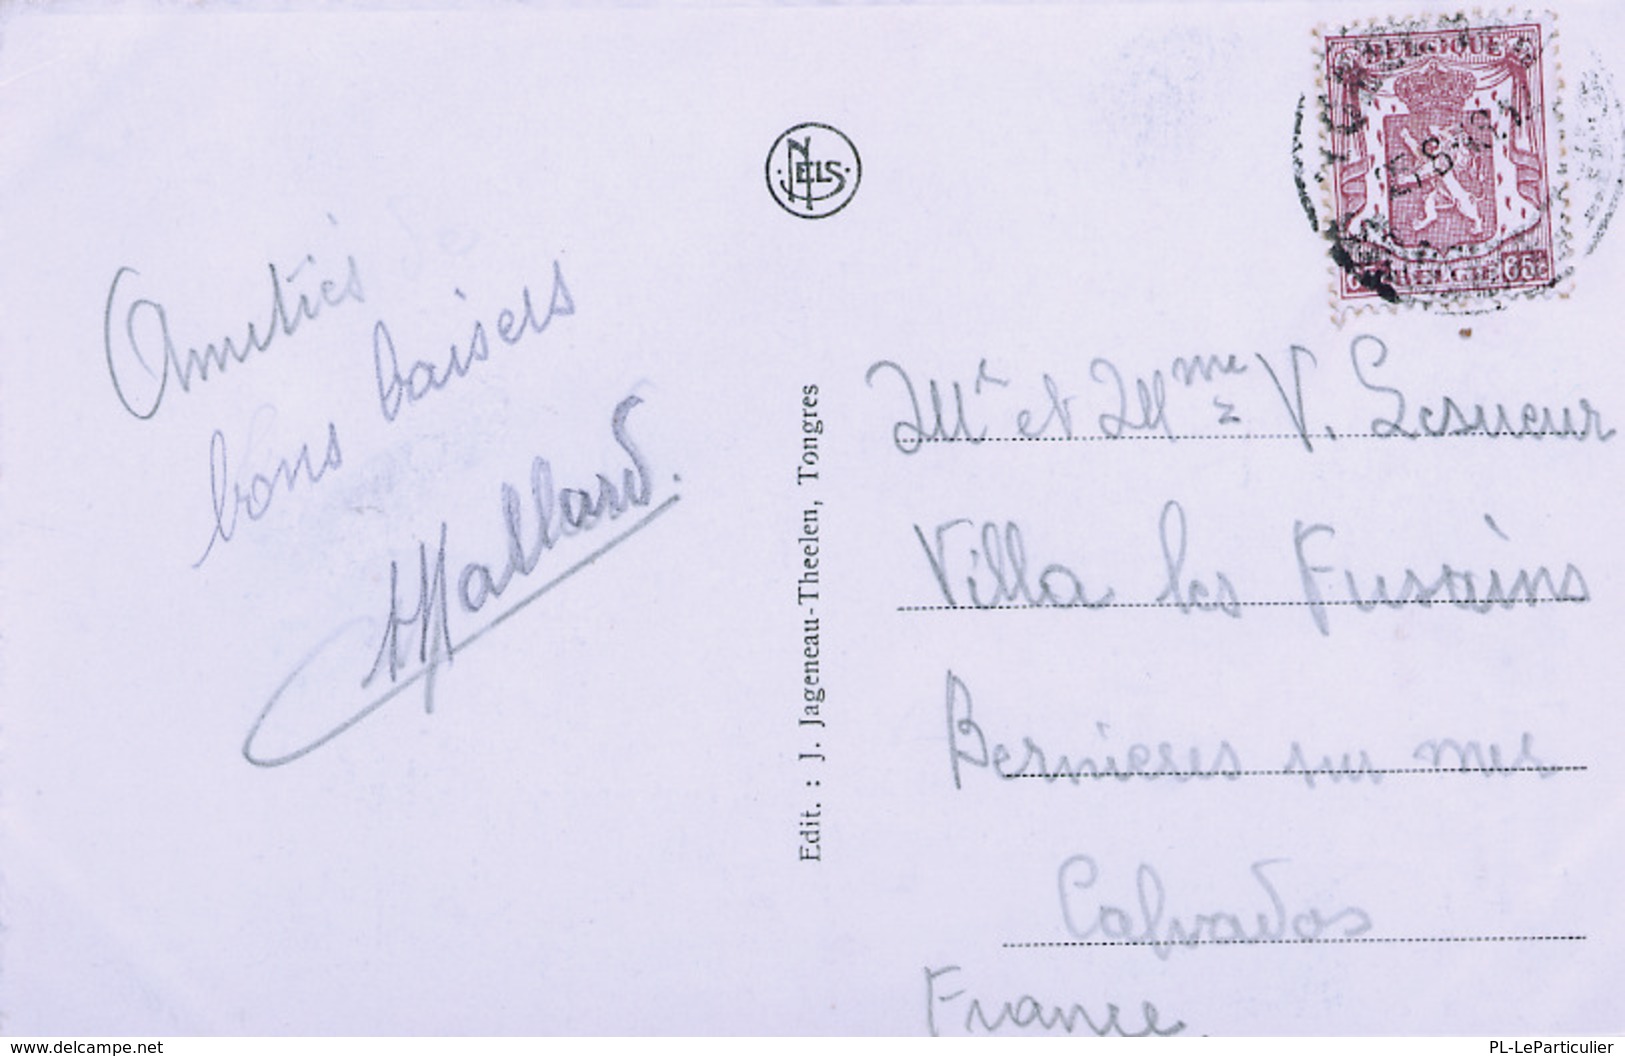 Amitiés
bons baisers
Mallard.
NELS
Edit. : J. Jageneau-Theelen, Tongres
BELGIQUE
BELGIE 65c
Mr et Mme V. Lesueur
Villa les Fusains
Bernieres sur mer
Calvados
France
www.delcampe.net
PL-LeParticulier